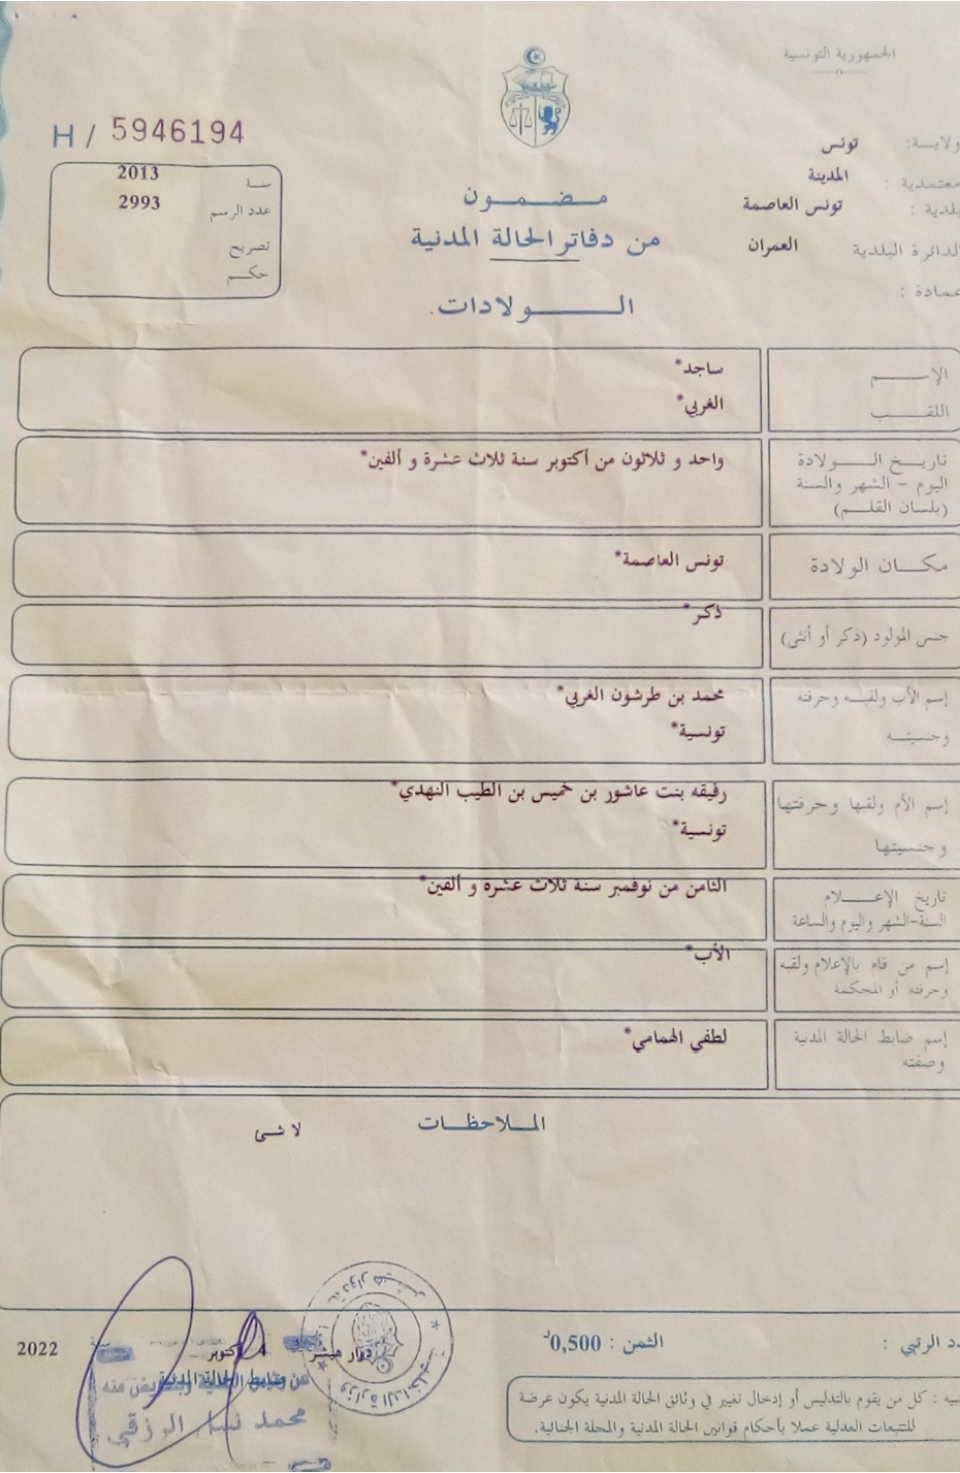 الجمهورية التونسية
H / 5946194
ولايـة: تونس
معتمدية : المدينة
بلدية : تونس العاصمة
الدائرة البلدية العمران
عمادة :
سنة 2013
عدد الرسم 2993
تصريح
حكـم
مـضـمـون
من دفاتر الحالة المدنية
الـولادات.
الإسـم ساجد*
اللقـب الغربي*
تاريـخ الـولادة واحد و ثلاثون من أكتوبر سنة ثلاث عشرة و ألفين*
اليوم - الشهر والسنة
(بلسان القلـم)
مكـان الولادة تونس العاصمة*
جنس المولود (ذكر أو أنثى) ذكر*
إسم الأب ولقبـه وحرفته محمد بن طرشون الغربي*
وجنسيتـه تونسية*
إسم الأم ولقبها وحرفتها رفيقه بنت عاشور بن خميس بن الطيب النهدي*
وجنسيتها تونسية*
تاريخ الإعـلام الثامن من نوفمبر سنة ثلاث عشرة و ألفين*
السنة-الشهر واليوم والساعة
إسم من قام بالإعلام ولقبه الأب*
وحرفته أو المحكمة
إسم ضابط الحالة المدنية لطفي الهمامي*
وصفته
المـلاحظـات
لا شئ
دد الرتبي :
الثمن : 0,500د
دوار هيشر
4 أكتوبر
2022
ضابط الحالة المدنية
محمد الرزقي
بيه : كل من يقوم بالتدليس أو إدخال تغيير في وثائق الحالة المدنية يكون عرضة
للتتبعات العدلية عملا بأحكام قوانين الحالة المدنية والمجلة الجنائية.